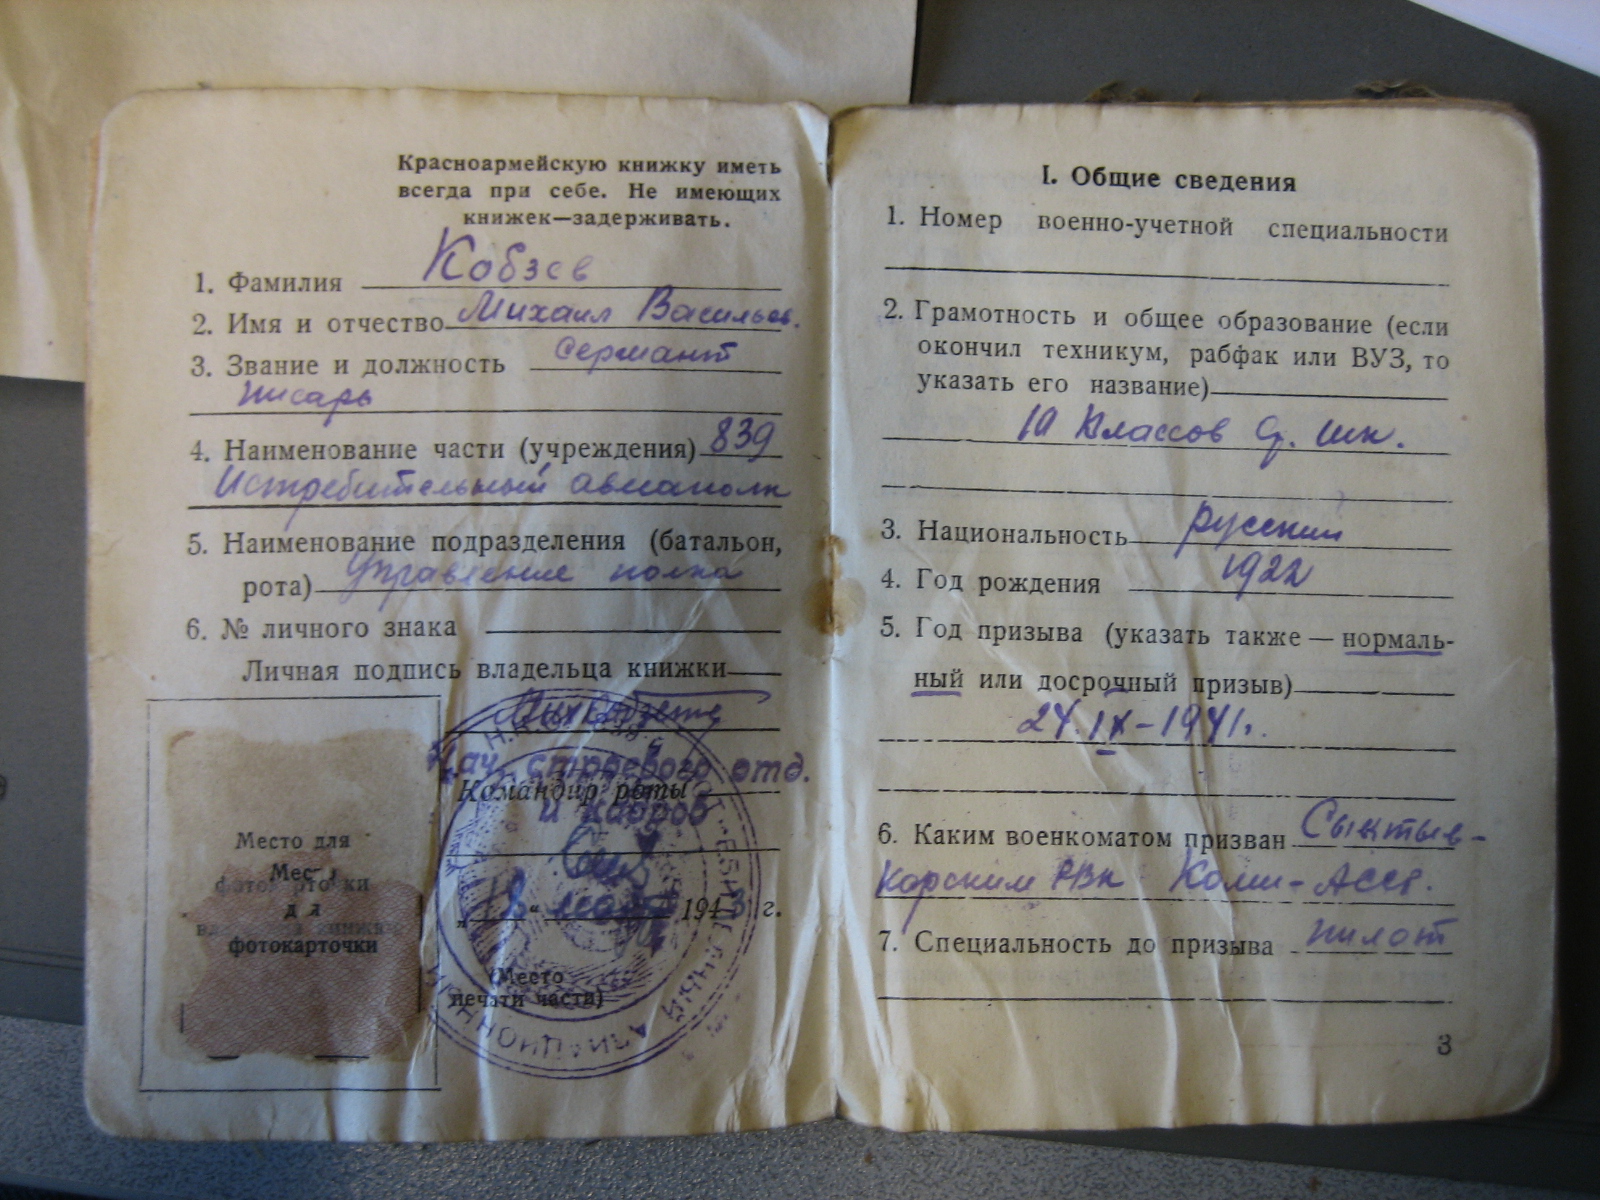 Красноармейскую книжку иметь
всегда при себе. Не имеющих
книжек—задерживать.
1. Фамилия Кобзев
2. Имя и отчество Михаил Васильев.
3. Звание и должность сержант
писарь
4. Наименование части (учреждения) 839
Истребительный авиаполк
5. Наименование подразделения (батальон,
рота) Управление полка
6. № личного знака
Личная подпись владельца книжки
Нач. строевого отд.
Командир роты
и кадров
„18“ 1943 г.
(Место
печати части)
Место для
Место
фотокарточки
для
фотокарточки
I. Общие сведения
1. Номер военно-учетной специальности
2. Грамотность и общее образование (если
окончил техникум, рабфак или ВУЗ, то
указать его название)
10 классов ср. шк.
3. Национальность русский
4. Год рождения 1922
5. Год призыва (указать также — нормаль-
ный или досрочный призыв)
24.IX-1941г.
6. Каким военкоматом призван Сыктыв-
карским РВК Коми-АССР.
7. Специальность до призыва пилот
3